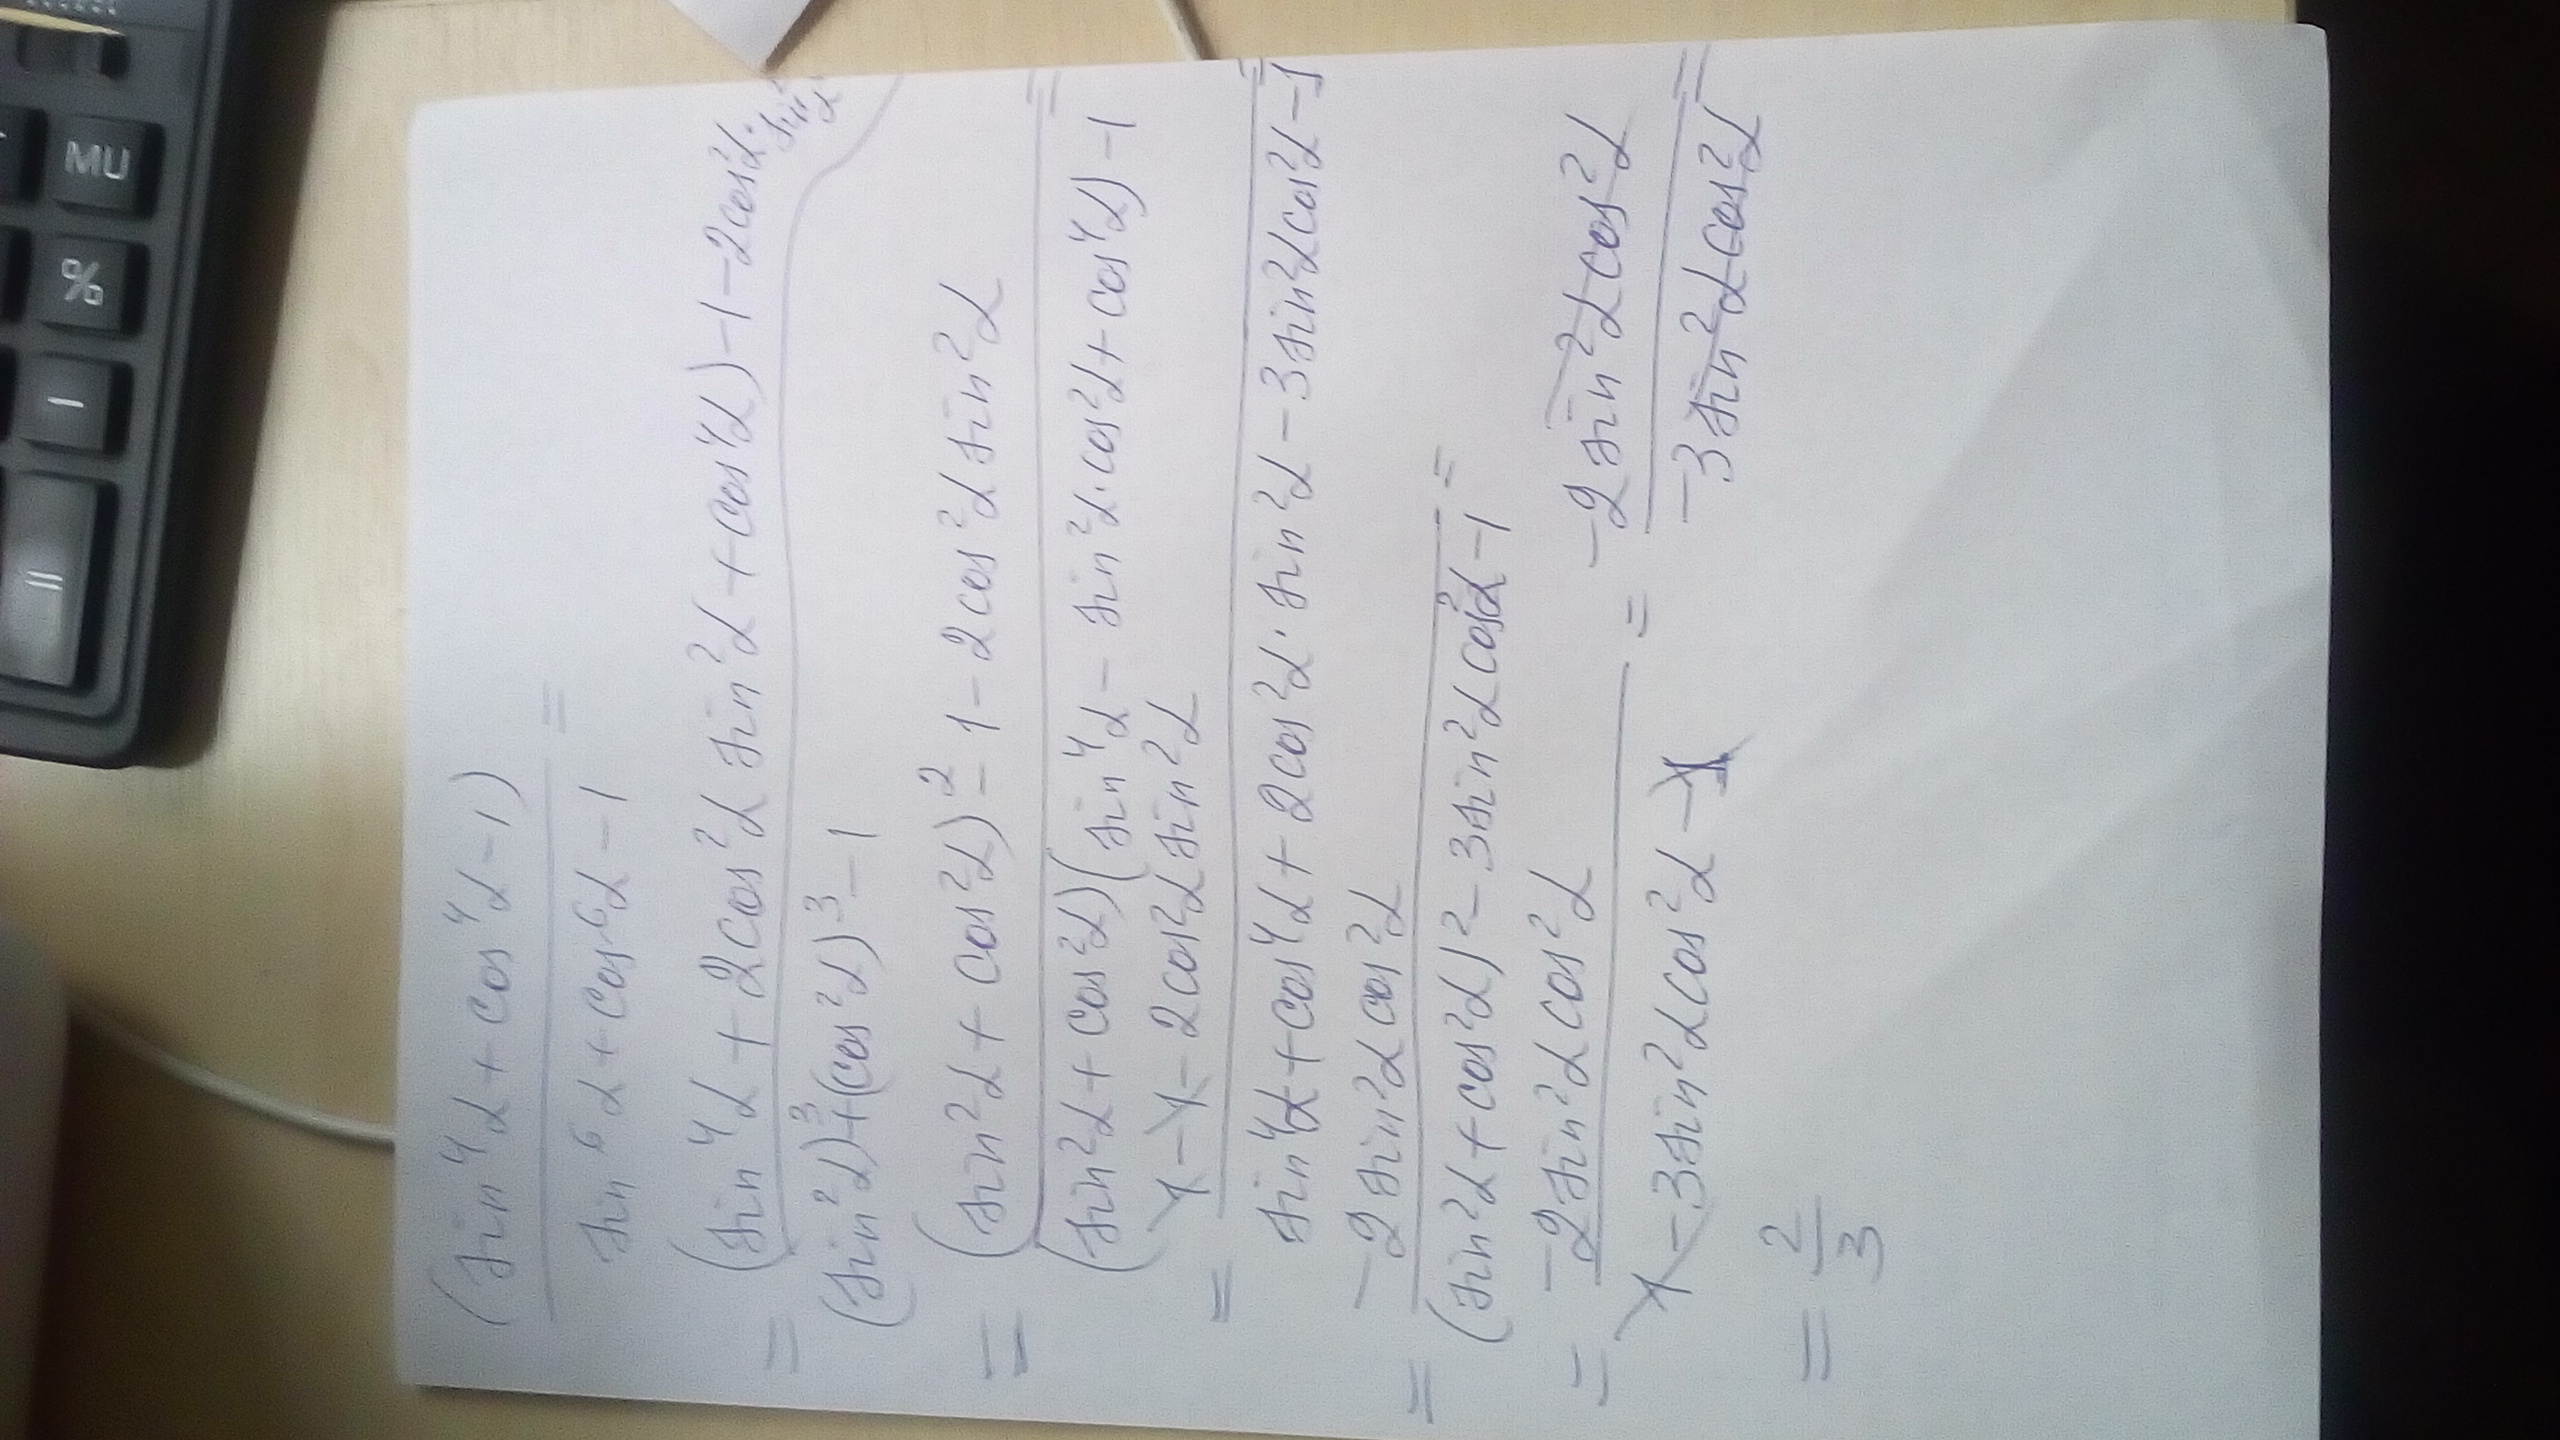 (sin⁴α + cos⁴α − 1)
=
sin⁶α + cos⁶α − 1
= (sin⁴α + 2cos²α sin²α + cos⁴α) − 1 − 2cos²α · sin²α
(sin²α)³ + (cos²α)³ − 1
= (sin²α + cos²α)² − 1 − 2cos²α sin²α =
(sin²α + cos²α)(sin⁴α − sin²α · cos²α + cos⁴α) − 1
= 1 − 1 − 2cos²α sin²α =
sin⁴α + cos⁴α + 2cos²α · sin²α − 3sin²α cos²α − 1
= −2 sin²α cos²α =
(sin²α + cos²α)² − 3sin²α cos²α − 1
= −2sin²α cos²α = −2 sin²α cos²α =
1 − 3sin²α cos²α − 1 −3 sin²α cos²α
= 2
3
MU
%
−
=